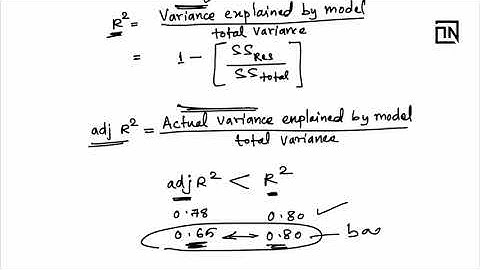 R² = Variance explained by model / total variance
= 1 - [SS Res / SS total]
adj R² = Actual variance explained by model / total variance
adj R² < R²
0.78 0.80 ✓
0.65 ↔ 0.80 —